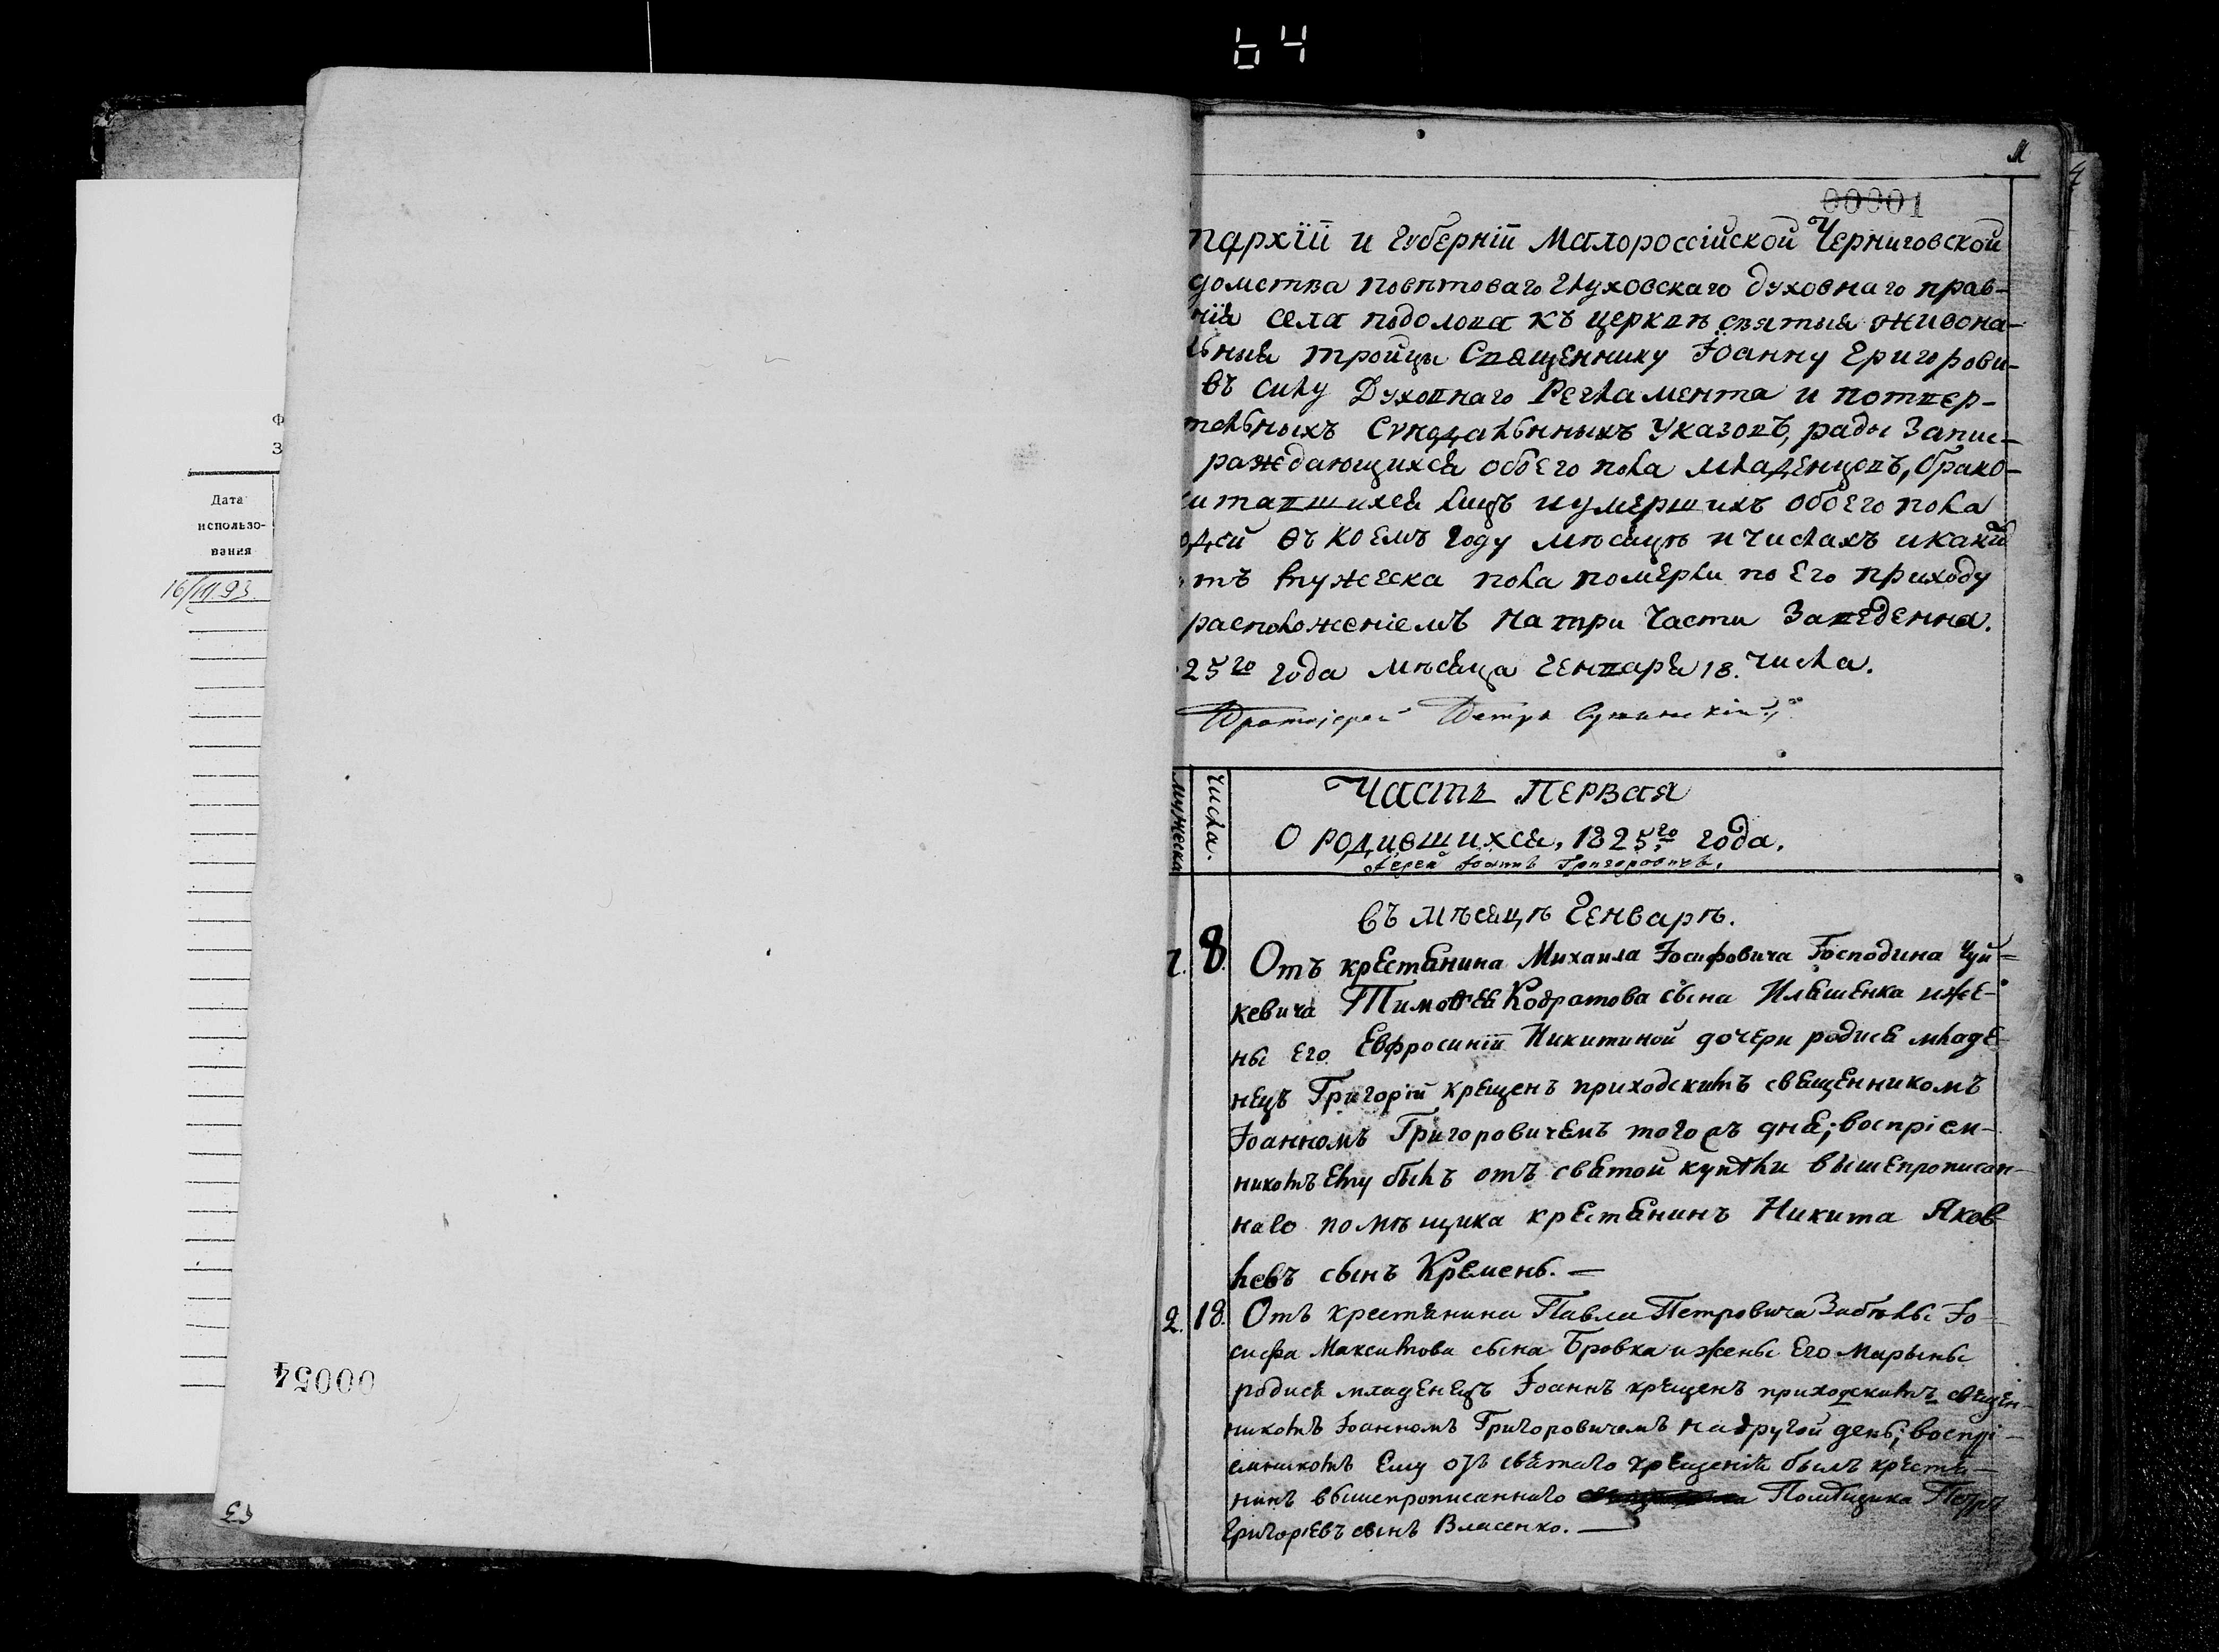 64
1
4
00001
пархїи и губернїи Малороссїйской Черниговской
домства повѣтоваго Глуховскаго духовнаго прав-
нїя села подолова къ церквѣ святыя живона-
льныя тройцы Священнику Іоанну Григорови-
въ силу Духовнаго Регламента и потвер-
тельныхъ Сунодальнныхъ Указовъ, ради Запис-
раждающихся обоего пола младенцовъ, брако-
читавшихся лицъ и умершихъ обоего пола
одей въ коемъ году мѣсяцѣ и числахъ и каки
тъ мужеска пола померли по его приходу
расположенїемъ на три части Заведенна.
25го года мѣсяца Генваря 18. числа.
Протоіерей Петръ
мужеска
числа.
Часть Первая
О родившихся, 1825го года.
Іерей Іоаннъ Григоровичъ.
въ мѣсяцѣ Генварѣ.
1. 8. Отъ крестянина Михаила Іосифовича Господина Чуй-
кевича Тимоѳея Кодратова сына Иляшенка и же-
ны его Евфросинїи Никитиной дочери родися младе-
нецъ Григорїй крещенъ приходскимъ священникомъ
Іоанномъ Григоровичемъ того жъ дня; воспрїем-
никомъ ему былъ отъ святой купѣли вышепрописан-
наго помѣщика крестянинъ Никита Яков-
левъ сынъ Кремень. —
2. 18. Отъ крестянина Павла Петровича Забѣлы Іо-
сифа Максимова сына Бровка и жены его Марыны
родися младенецъ Іоаннъ крещенъ приходскимъ священ-
никомъ Іоанномъ Григоровичемъ на другой день; воспрі-
емникомъ ему отъ святаго крещенія былъ крестя-
нинъ вышепрописаннаго Помѣщика Петръ
Григоріевъ сынъ Власенко. —
Ф
З
Дата
использо-
вания
16/III.93.
00054